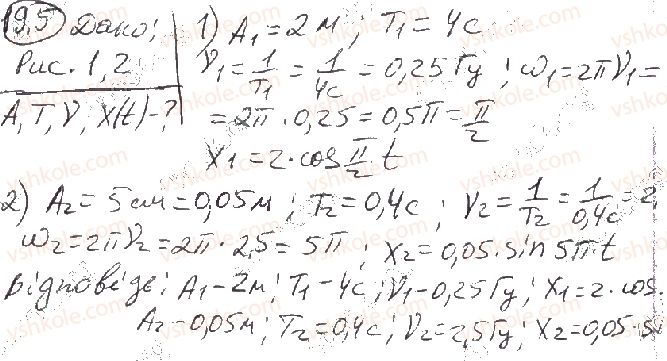 19.5 Дано:
Рис. 1, 2
A, T, ν, x(t) - ?
1) A₁ = 2 м; T₁ = 4 с
ν₁ = 1/T₁ = 1/4с = 0,25 Гц; ω₁ = 2πν₁ =
= 2π · 0,25 = 0,5π = π/2
x₁ = 2 · cos π/2 t
2) A₂ = 5 см = 0,05 м; T₂ = 0,4 с; ν₂ = 1/T₂ = 1/0,4с = 2,
ω₂ = 2πν₂ = 2π · 2,5 = 5π; x₂ = 0,05 · sin 5π t
Відповіде: A₁ - 2 м; T₁ - 4с; ν₁ - 0,25 Гц; x₁ = 2 · cos.
A₂ = 0,05 м; T₂ = 0,4 с; ν₂ = 2,5 Гц; x₂ = 0,05 · si
vshkole.com